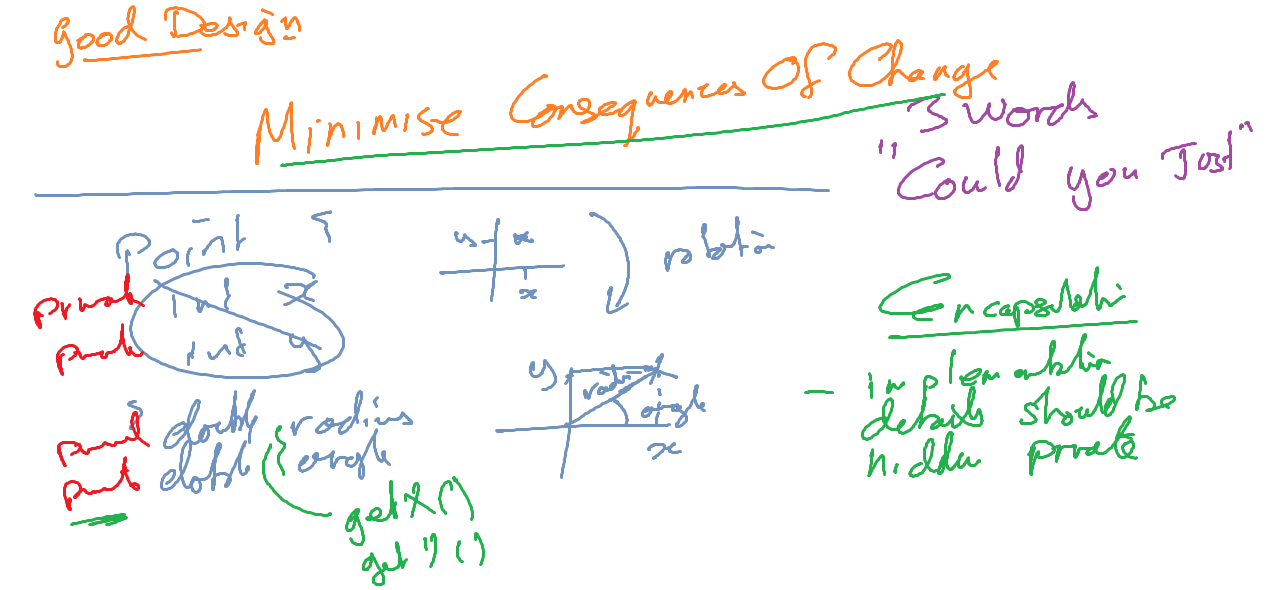 Good Design
Minimise Consequences Of Change
3 words
"Could you Just"
Point {
private int x
private int y
private double radius
private double angle
getX()
getY()
y x
x
rotation
y radius
angle
x
Encapsulation
- implementation
details should be
hidden private